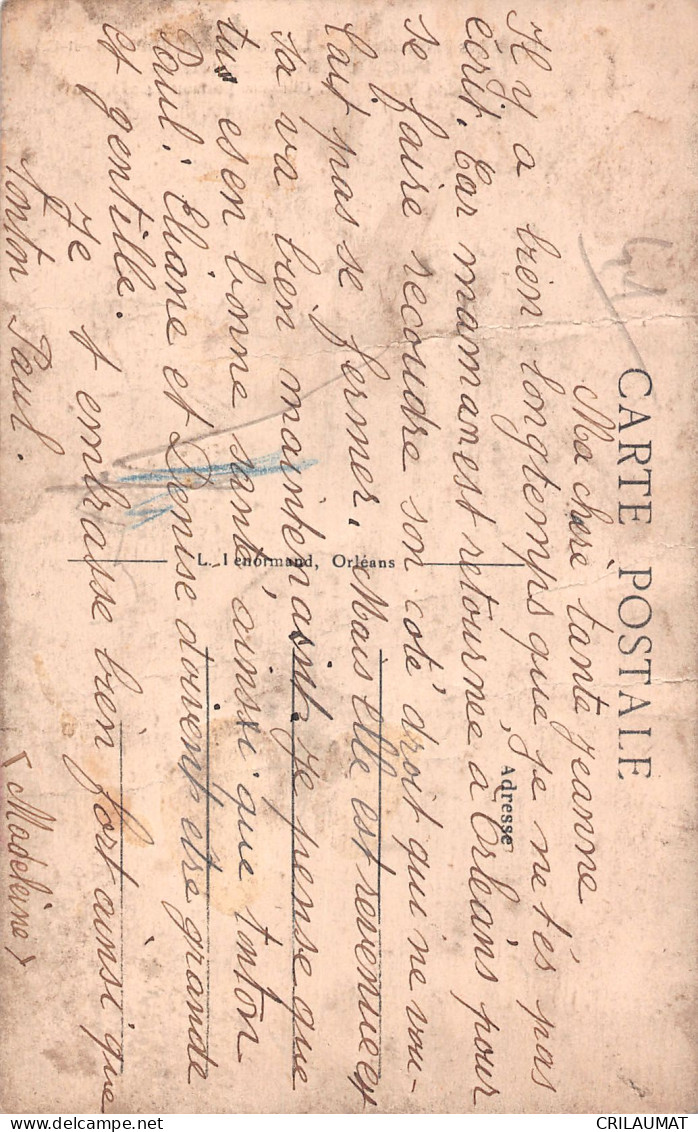 41
CARTE POSTALE
Adresse
L. Lenormand, Orléans
Ma chère tante Jeanne
Il y a bien longtemps que je ne tés pas
écrit. Car maman est retournée à Orléans pour
se faire recoudre son coté droit qui ne vou-
lait pas se fermer. Mais elle est revenue et
sa va bien maintenant. Je pense que
tu es en bonne santé ainsi que tonton
Paul. Eliane et Denise doivent être grande
et gentille.
Je t embrasse bien fort ainsi que
tonton Paul.
(Madeleine)
delcampe.net
CRILAUMAT